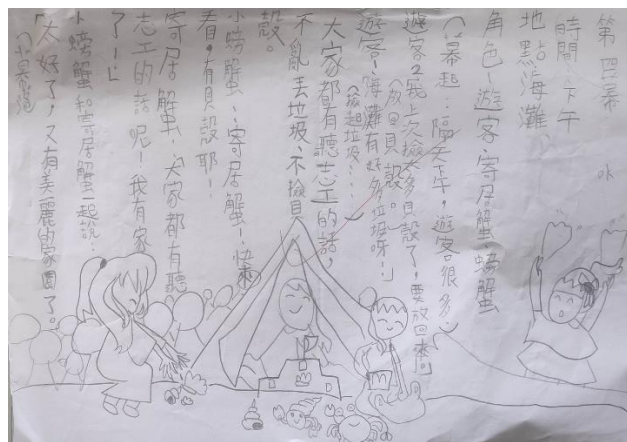 第四幕
時間：下午
地點：海灘
角色：遊客、寄居蟹、螃蟹
（幕起：隔天下午，遊客很多）
遊客2：我上次撿太多貝殼了，要放回來
（放回貝殼。）
遊客1：海灘有好多垃圾呀！
（撿起垃圾…）
大家都有聽志工的話，
不亂丟垃圾、不撿貝
殼。
小螃蟹：寄居蟹！快來
看，有貝殼耶！
寄居蟹：大家都有聽
志工的話呢！我有家
了！」
小螃蟹和寄居蟹一起說：
「太好了，又有美麗的家園了。